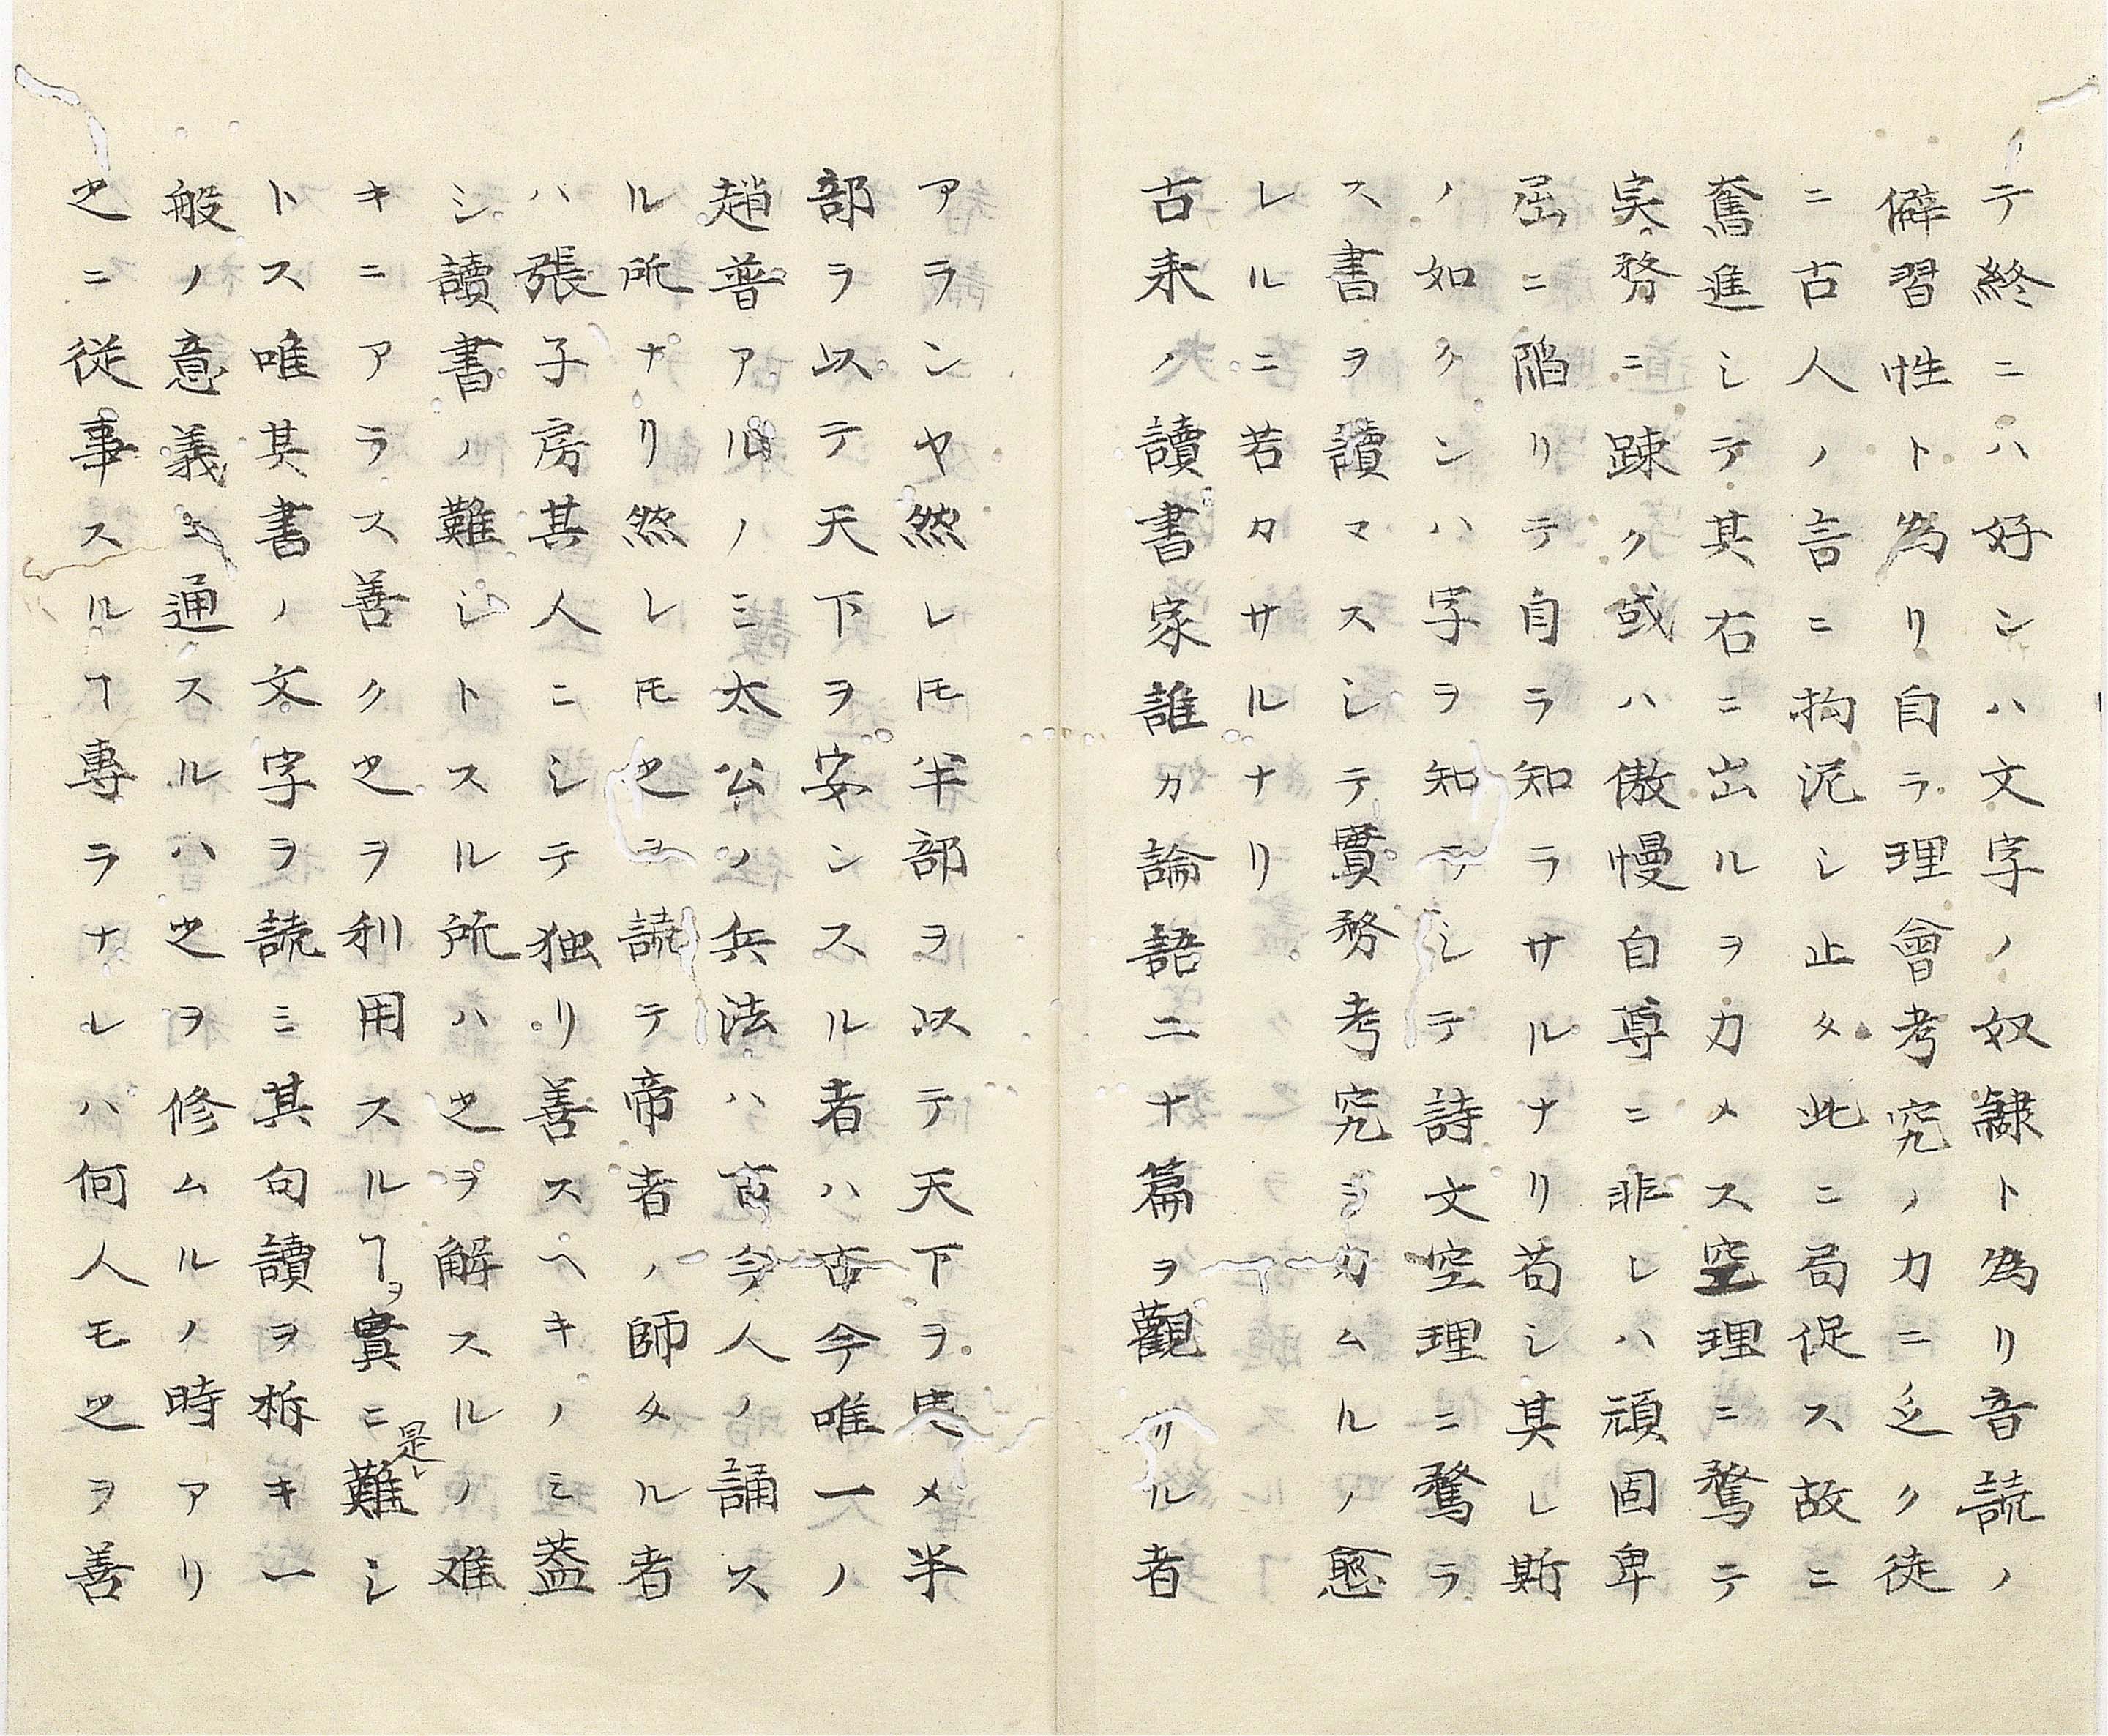 テ終ニハ好ンハ文字ノ奴隷ト為リ音読ノ
僻習性ト為リ自ラ理會考究ノカニ乏ク徒
ニ古人ノ言ニ拘泥シ止タ此ニ局促ス故ニ
奮進シテ其右ニ出ルヲカメス空理ニ騖テ
実務ニ踈ク或ハ傲慢自尊ニ非レハ頑固卑
屈ニ陥リテ自ラ知ラサルナリ苟シ其レ斯
ノ如クンハ字ヲ知テシテ詩文空理ニ騖ラ
ス書ヲ讀マスシテ實務考究ヲカムルノ愈
レルニ若カサルナリ
古来ノ讀書家誰カ論語二十篇ヲ觀サル者
アランヤ然レ𪜈半部ヲ以テ天下ヲ定メ半
部ラ以テ天下ヲ安ンスル者ハ古今唯一ノ
趙普アルノミ太公ノ兵法ハ古今人ノ誦ス
ル所ナリ然レ𪜈之ヲ読テ帝者ノ師タル者
ハ張子房其人ニシテ独リ善スヘキノミ蓋
シ讀書ノ難シトスル所ハ之ヲ解スルノ难
キニアラス善ク之ヲ利用スルヿヲ實ニ是レ難シ
トス唯其書ノ文字ヲ読ミ其句讀ヲ柝キ一
般ノ意義ニ通スルハ之ヲ修ムルノ時アリ
之ニ従事スルヿ專ラナレハ何人モ之ヲ善